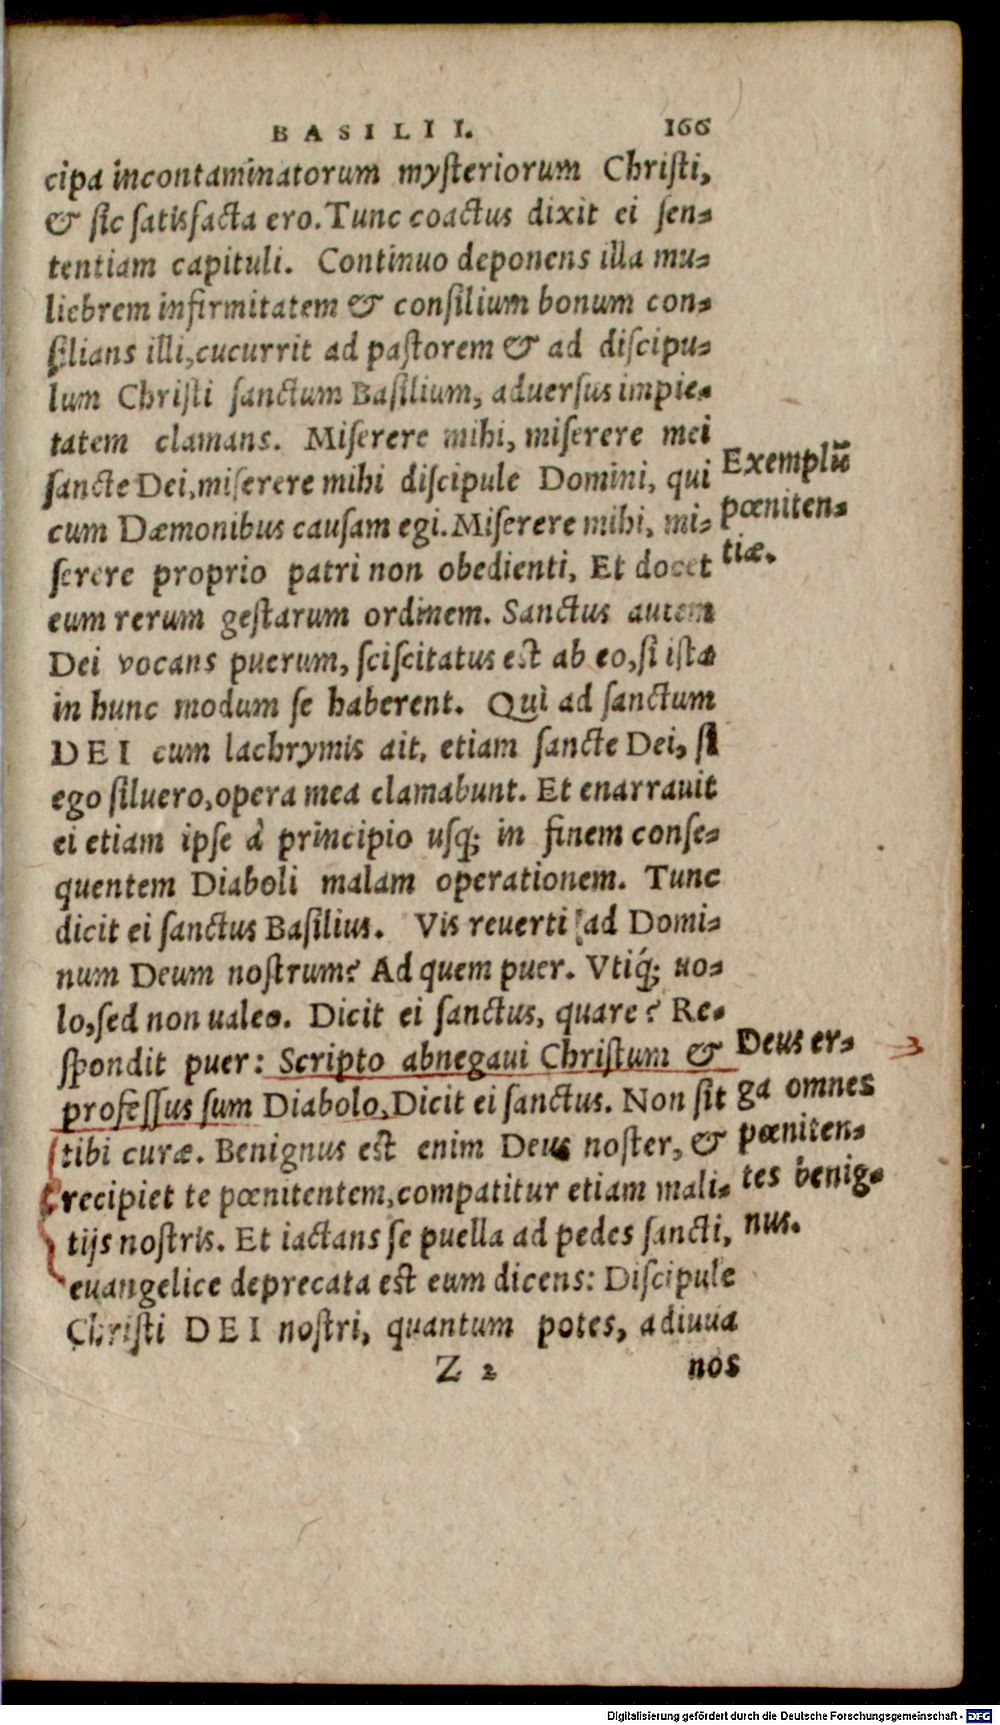 BASILII. 166
cipa incontaminatorum myſteriorum Chriſti,
& ſic ſatisfacta ero. Tunc coactus dixit ei ſen-
tentiam capituli. Continuo deponens illa mu-
liebrem infirmitatem & conſilium bonum con-
ſilians illi, cucurrit ad paſtorem & ad diſcipu-
lum Chriſti ſanctum Baſilium, aduerſus impie-
tatem clamans. Miſerere mihi, miſerere mei
ſancte Dei, miſerere mihi diſcipule Domini, qui
cum Dæmonibus cauſam egi. Miſerere mihi, mi-
ſerere proprio patri non obedienti, Et docet
eum rerum geſtarum ordinem. Sanctus autem
Dei vocans puerum, ſciſcitatus est ab eo, ſi iſta
in hunc modum ſe haberent. Qui ad ſanctum
DEI cum lachrymis ait, etiam ſancte Dei, ſi
ego ſiluero, opera mea clamabunt. Et enarrauit
ei etiam ipſe à principio uſq; in finem conſe-
quentem Diaboli malam operationem. Tunc
dicit ei ſanctus Baſilius. Vis reuerti ad Domi-
num Deum noſtrum? Ad quem puer. Vtiq́; uo-
lo, ſed non ualeo. Dicit ei ſanctus, quare? Re-
ſpondit puer: Scripto abnegaui Chriſtum &
profeſſus ſum Diabolo, Dicit ei ſanctus. Non ſit
tibi curæ. Benignus est enim Deus noſter, &
recipiet te pœnitentem, compatitur etiam mali-
tijs noſtris. Et iactans ſe puella ad pedes ſancti,
euangelice deprecata est eum dicens: Diſcipule
Chriſti DEI noſtri, quantum potes, adiuua
Z 2 nos
Exemplũ
pœniten-
tiæ.
Deus er-
ga omnes
pœniten-
tes benig-
nus.
3
Digitalisierung gefördert durch die Deutsche Forschungsgemeinschaft - DFG